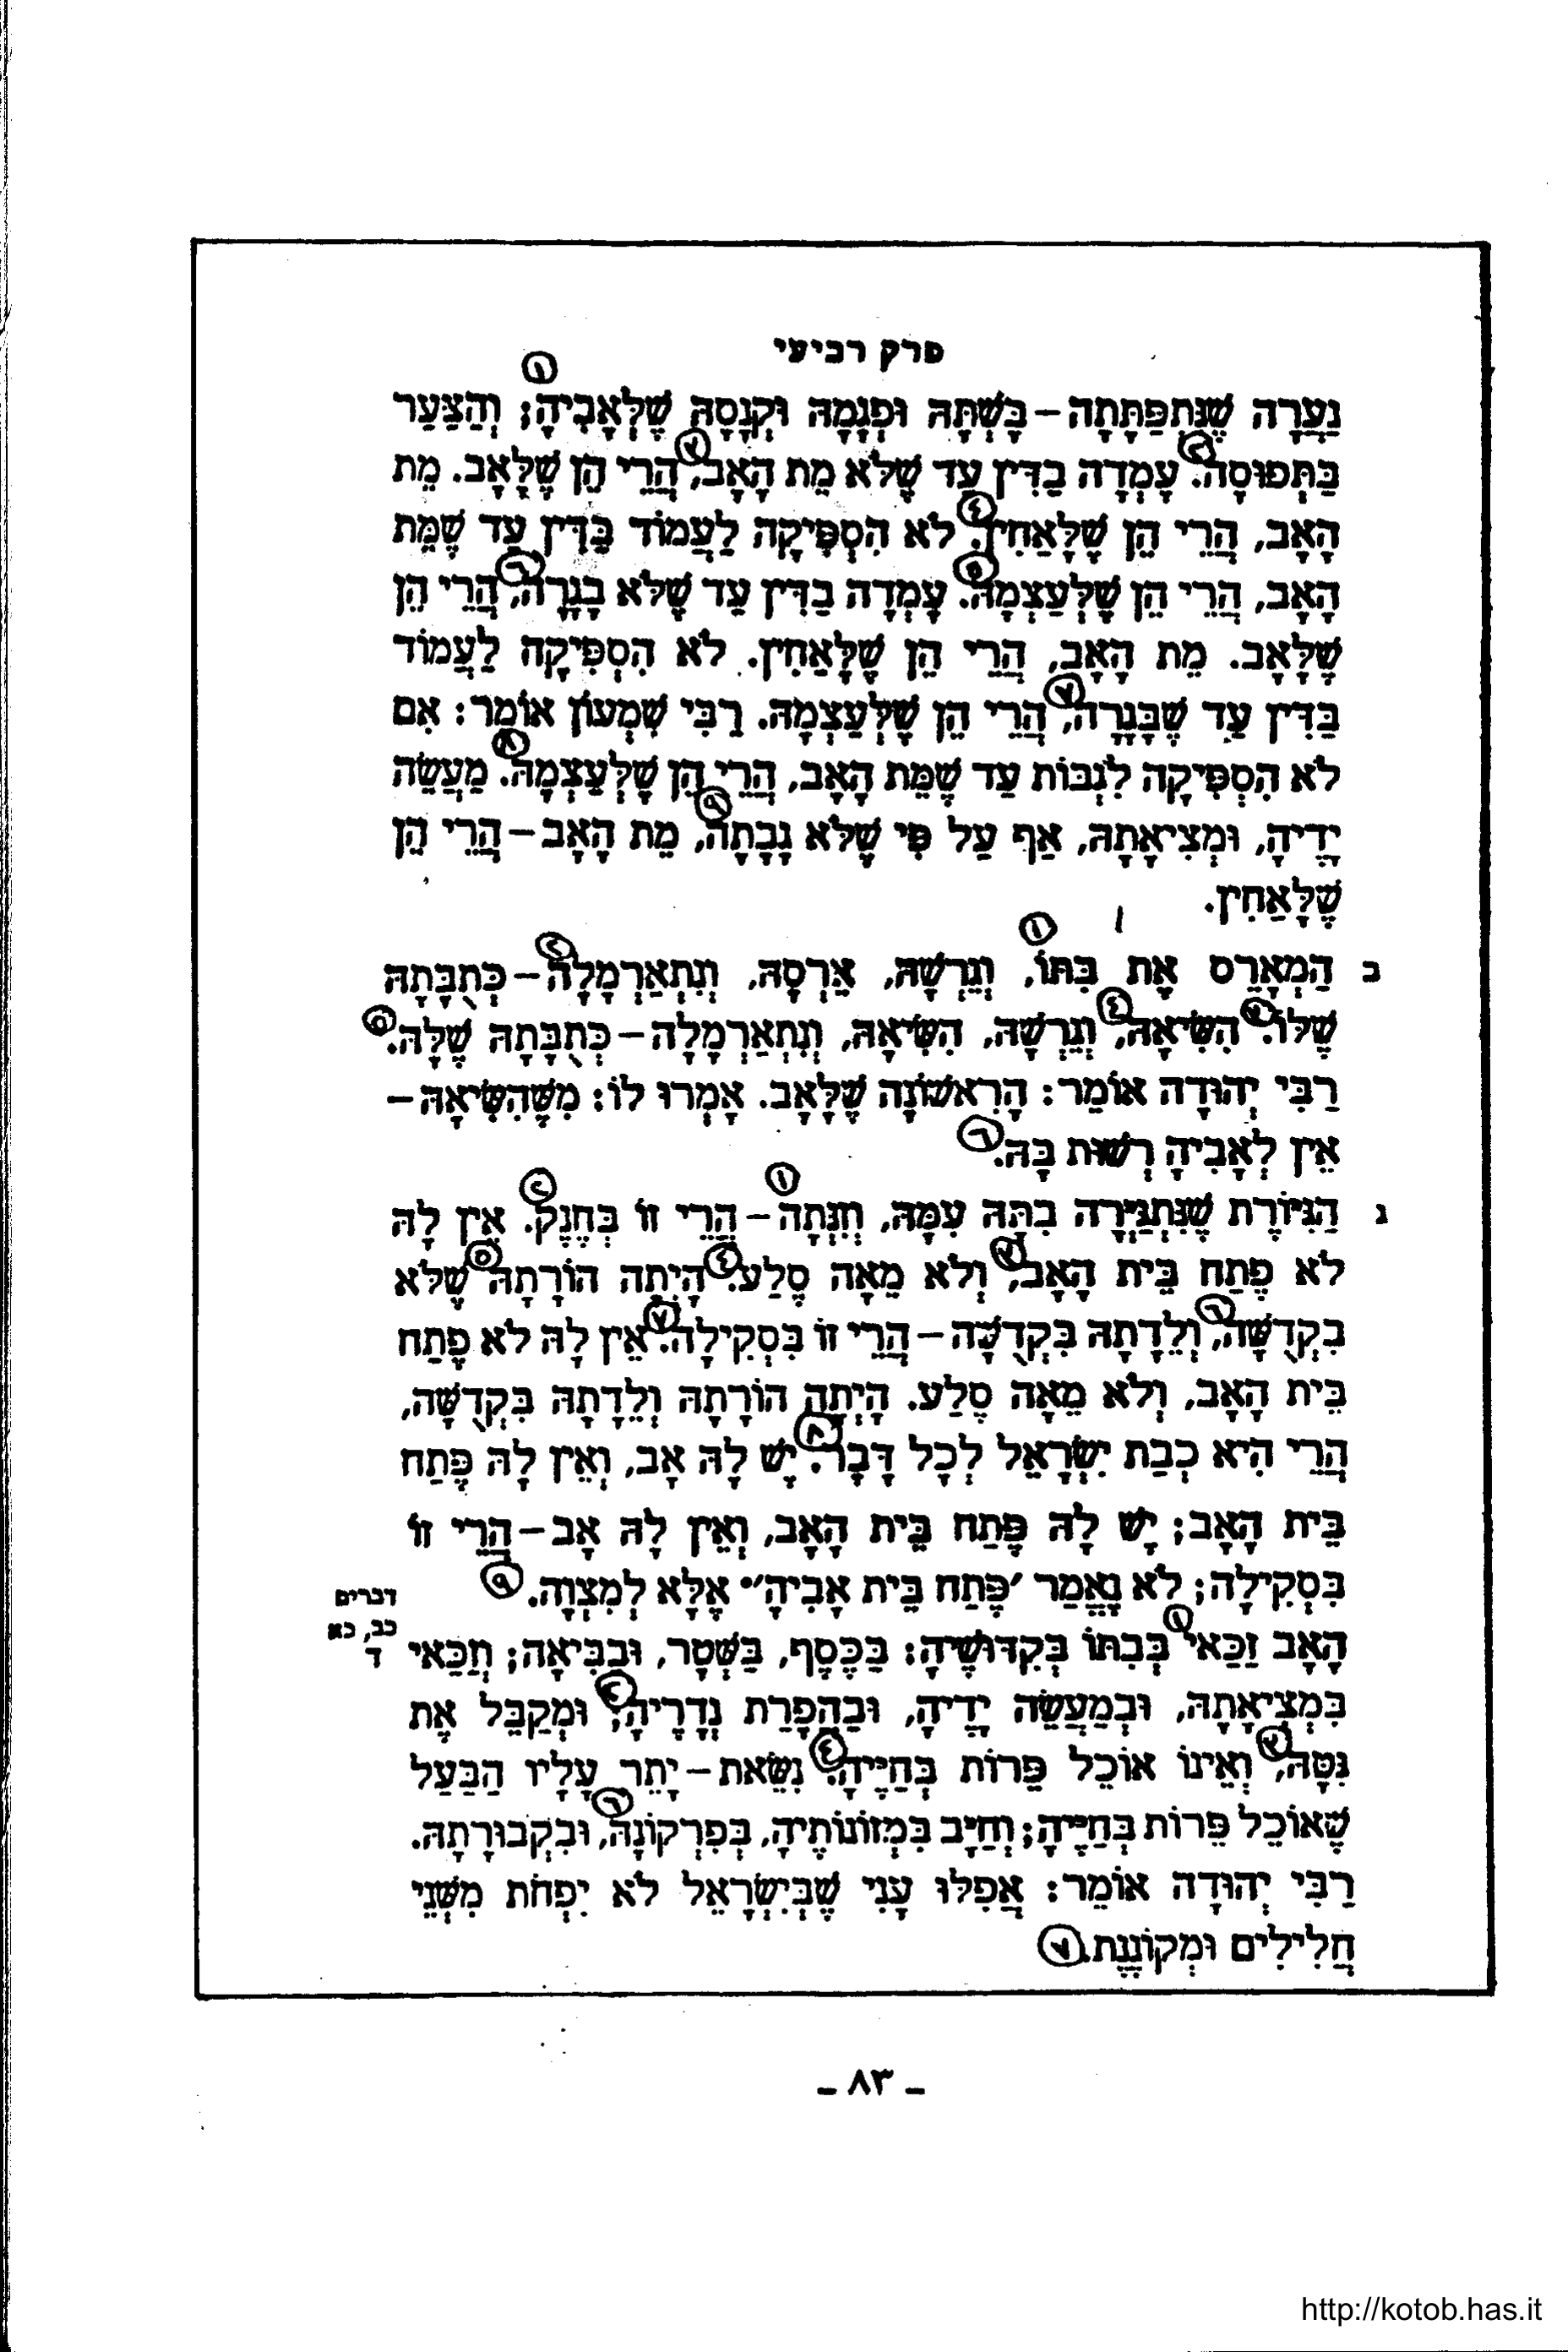 פרק רביעי
נַעֲרָה שֶׁנִּתְפַּתְּתָה – בָּשְׁתָּהּ וּפְגָמָהּ וּקְנָסָהּ שֶׁלְּאָבִיהָ; וְהַצַּעַר
בַּתְּפוּסָה. עָמְדָה בַדִּין עַד שֶׁלֹּא מֵת הָאָב, הֲרֵי הֵן שֶׁלָּאָב. מֵת
הָאָב, הֲרֵי הֵן שֶׁלָּאַחִין. לֹא הִסְפִּיקָה לַעֲמוֹד בַּדִּין עַד שֶׁמֵּת
הָאָב, הֲרֵי הֵן שֶׁלְּעַצְמָהּ. עָמְדָה בַדִּין עַד שֶׁלֹּא בָגָרָה, הֲרֵי הֵן
שֶׁלָּאָב. מֵת הָאָב, הֲרֵי הֵן שֶׁלָּאַחִין. לֹא הִסְפִּיקָה לַעֲמוֹד
בַּדִּין עַד שֶׁבָּגָרָה, הֲרֵי הֵן שֶׁלְּעַצְמָהּ. רַבִּי שִׁמְעוֹן אוֹמֵר: אִם
לֹא הִסְפִּיקָה לִגְבּוֹת עַד שֶׁמֵּת הָאָב, הֲרֵי הֵן שֶׁלְּעַצְמָהּ. מַעֲשֵׂה
יָדֶיהָ, וּמְצִיאָתָהּ, אַף עַל פִּי שֶׁלֹּא גָבָתָה, מֵת הָאָב – הֲרֵי הֵן
שֶׁלָּאַחִין.
ב הַמְאָרֵס אֶת בִּתּוֹ, וְגֵרְשָׁהּ, אֵרְסָהּ, וְנִתְאַרְמָלָה – כְּתֻבָּתָהּ
שֶׁלּוֹ. הִשִּׂיאָהּ, וְגֵרְשָׁהּ, הִשִּׂיאָהּ, וְנִתְאַרְמָלָה – כְּתֻבָּתָהּ שֶׁלָּהּ.
רַבִּי יְהוּדָה אוֹמֵר: הָרִאשׁוֹנָה שֶׁלָּאָב. אָמְרוּ לוֹ: מִשֶּׁהִשִּׂיאָהּ –
אֵין לְאָבִיהָ רְשׁוּת בָּהּ.
ג הַגִּיּוֹרֶת שֶׁנִּתְגַּיְּרָה בִתָּהּ עִמָּהּ, וְזִנְּתָה – הֲרֵי זוֹ בְּחֶנֶק. אֵין לָהּ
לֹא פֶתַח בֵּית הָאָב, וְלֹא מֵאָה סֶלַע. הָיְתָה הוֹרָתָהּ שֶׁלֹּא
בִקְדֻשָּׁה, וְלֵדָתָהּ בִּקְדֻשָּׁה – הֲרֵי זוֹ בִּסְקִילָה. אֵין לָהּ לֹא פֶתַח
בֵּית הָאָב, וְלֹא מֵאָה סֶלַע. הָיְתָה הוֹרָתָהּ וְלֵדָתָהּ בִּקְדֻשָּׁה,
הֲרֵי הִיא כְבַת יִשְׂרָאֵל לְכָל דָּבָר. יָשׁ לָהּ אָב, וְאֵין לָהּ פֶּתַח
בֵּית הָאָב; יָשׁ לָהּ פֶּתַח בֵּית הָאָב, וְאֵין לָהּ אָב – הֲרֵי זוֹ
בִּסְקִילָה; לֹא נֶאֱמַר ׳פֶּתַח בֵּית אָבִיהָ׳ אֶלָּא לְמִצְוָה.
דברים
כב, כא
ד הָאָב זַכַּאי בְּבִתּוֹ בְּקִדּוּשֶׁיהָ: בַּכֶּסֶף, בַּשְּׁטָר, וּבַבִּיאָה; וְזַכַּאי
בִּמְצִיאָתָהּ, וּבְמַעֲשֵׂה יָדֶיהָ, וּבַהֲפָרַת נְדָרֶיהָ, וּמְקַבֵּל אֶת
גִּטָּהּ, וְאֵינוֹ אוֹכֵל פֵּרוֹת בְּחַיֶּיהָ. נִשֵּׂאת – יָתֵר עָלָיו הַבַּעַל
שֶׁאוֹכֵל פֵּרוֹת בְּחַיֶּיהָ; וְחַיָּב בִּמְזוֹנוֹתֶיהָ, בְּפִרְקוֹנָהּ, וּבִקְבוּרָתָהּ.
רַבִּי יְהוּדָה אוֹמֵר: אֲפִלּוּ עָנִי שֶׁבְּיִשְׂרָאֵל לֹא יִפְחֹת מִשְּׁנֵי
חֲלִילִים וּמְקוֹנֶנֶת.
– ٨٣ –
http://kotob.has.it